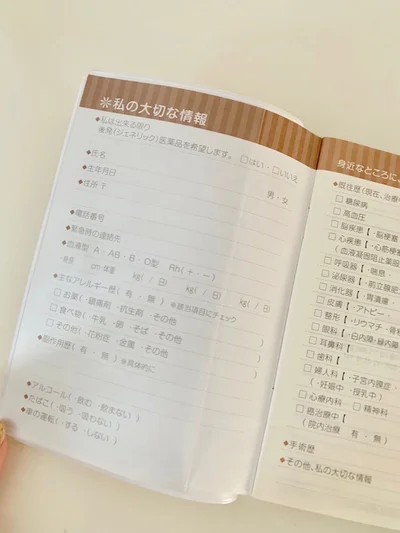 ※私の大切な情報
◆私は出来る限り
後発(ジェネリック)医薬品を希望します。 □はい・□いいえ
◆氏名
◆生年月日
男・女
◆住所 〒
◆電話番号
◆緊急時の連絡先
◆血液型 A・AB・B・O型 Rh(+・-)
身長 cm 体重 kg( / 日) kg( / 日) kg( / 日)
◆主なアレルギー歴( 有 ・ 無 ) ※該当項目にチェック
□お薬( ・鎮痛剤 ・抗生剤 ・その他 )
□食べ物( ・牛乳 ・卵 ・そば ・その他 )
□その他( ・花粉症 ・金属 ・その他 )
◆副作用歴( 有 ・ 無 ) ※具体的に
◆アルコール( ・飲む ・飲まない )
◆たばこ( ・吸う ・吸わない )
◆車の運転( ・する ・しない )
身近なところに、
◆既往歴(現在、治療
□糖尿病
□高血圧
□脳疾患【・脳梗塞
□心疾患【・心筋梗塞
(血液凝固阻止薬服
□呼吸器【・喘息
□泌尿器【・前立腺肥
□消化器【・胃潰瘍・
□皮膚【・アトピー・
□整形【・リウマチ・骨
□眼科【・白内障・緑内障
□耳鼻科【
□歯科【
□婦人科【・子宮内膜症・
(・妊娠中 ・授乳中)
□心療内科 □精神科
□癌治療中【
(院内治療 有 ・ 無)
◆手術歴
◆その他、私の大切な情報